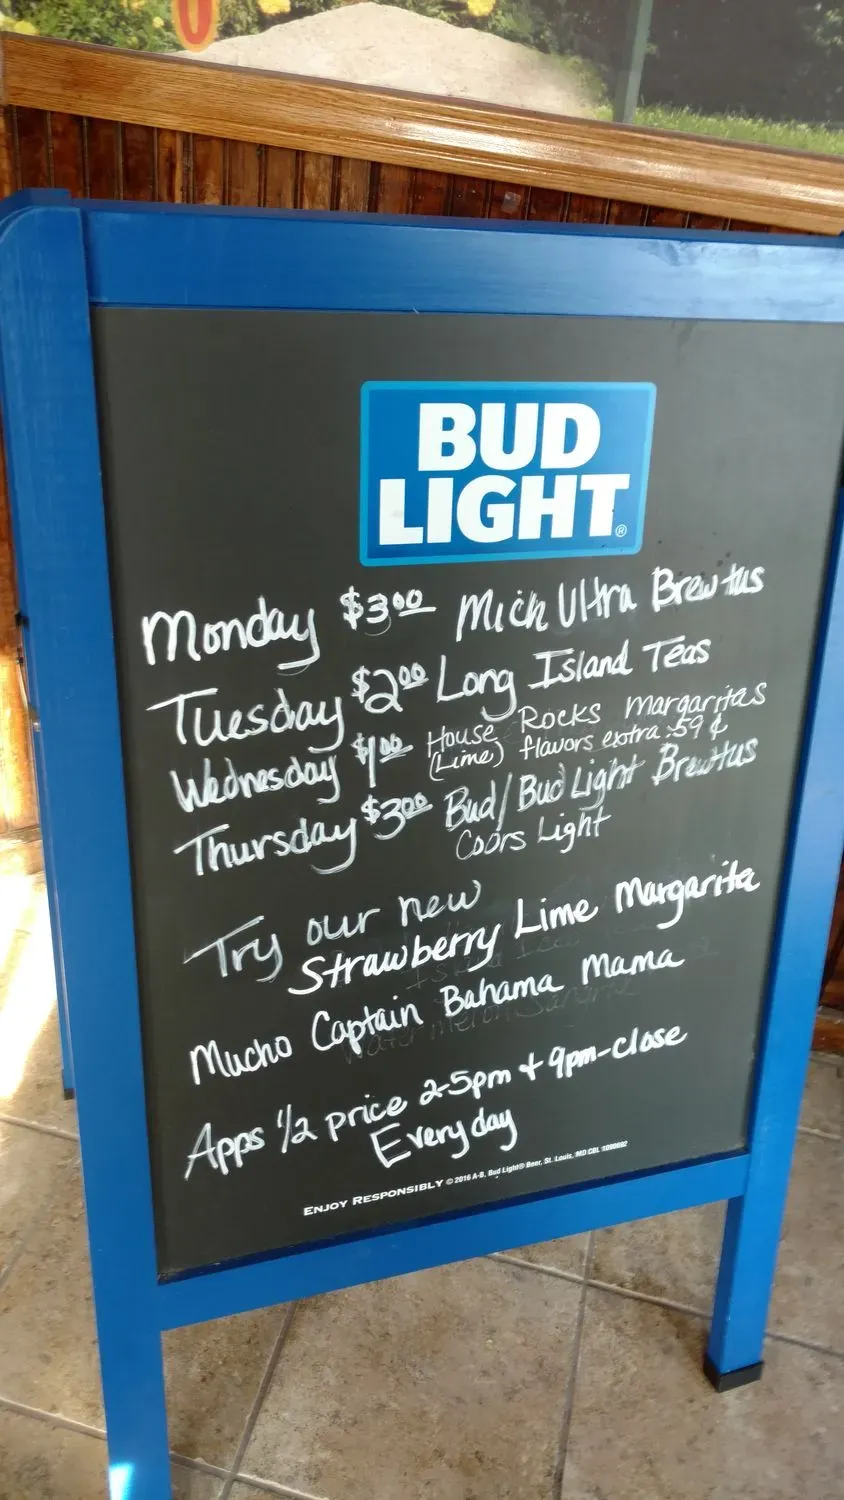 0
BUD
LIGHT®
Monday $3.00 Mich Ultra Brewtus
Tuesday $2.00 Long Island Teas
Wednesday $1.00 House Rocks margaritas
(Lime) flavors extra .59 ¢
Thursday $3.00 Bud/Bud Light Brewtus
Coors Light
Try our new
Strawberry Lime Margarita
Mucho Captain Bahama Mama
Apps 1/2 price 2-5pm + 9pm-close
Everyday
ENJOY RESPONSIBLY © 2016 A-B, Bud Light® Beer, St. Louis, MO CBL 1090602